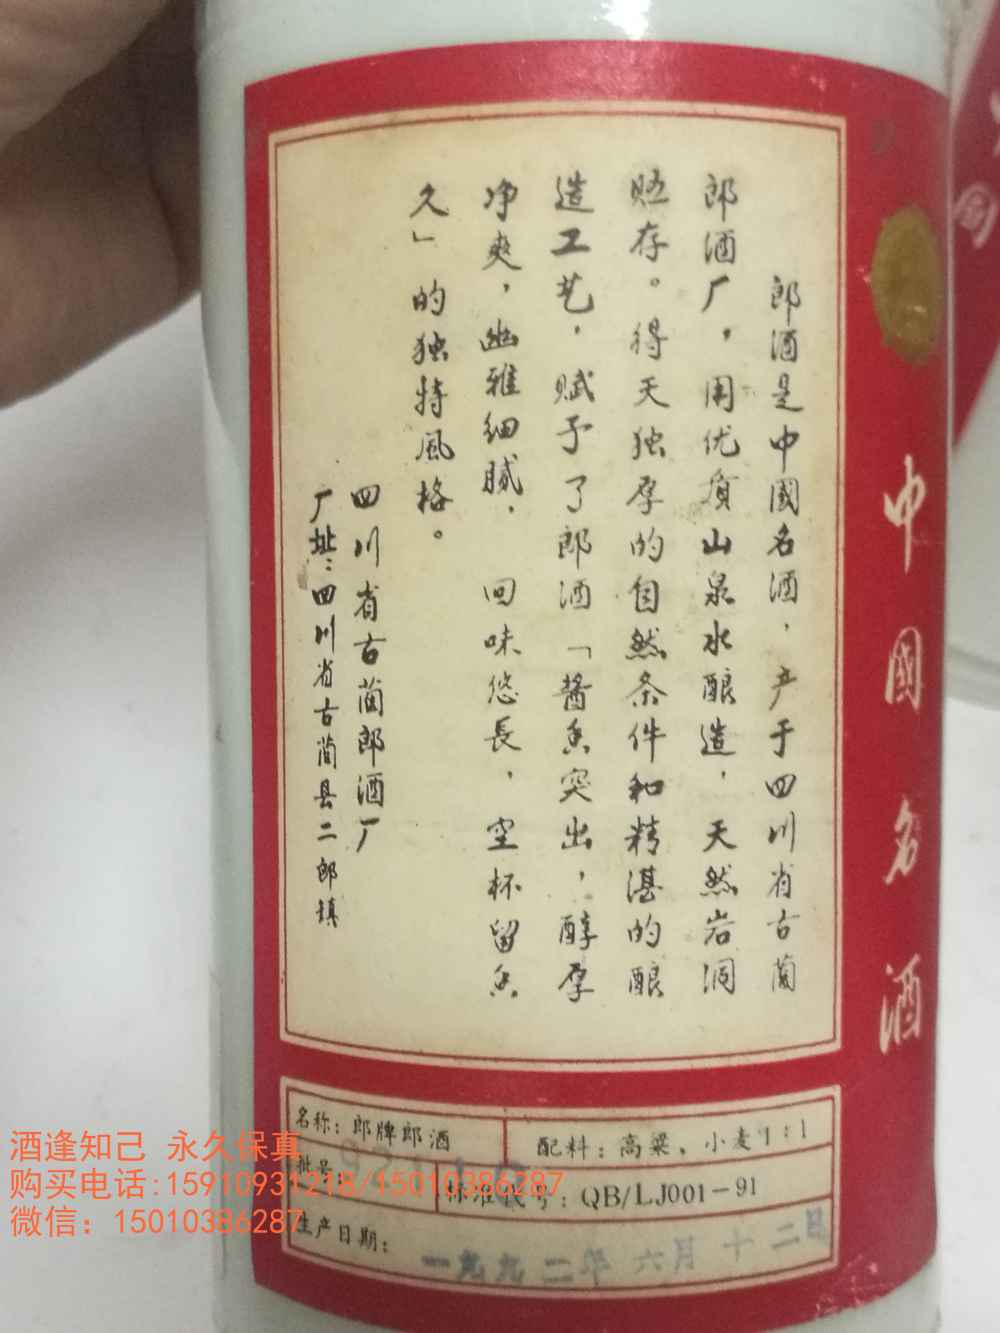 郎酒是中國名酒，产于四川省古蔺
郎酒厂，用优质山泉水酿造，天然岩洞
贮存。得天独厚的自然条件和精湛的酿
造工艺，赋予了郎酒「酱香突出，醇厚
净爽，幽雅细腻，回味悠長，空杯留香
久」的独特風格。
四川省古蔺郎酒厂
厂址：四川省古蔺县二郎镇
中國名酒
名称：郎牌郎酒
配料：高粱、小麦1:1
批号：
标准代号：QB/LJ001-91
生产日期：一九九二年六月十二日
酒逢知己 永久保真
购买电话:15910931218/15010386287
微信：15010386287